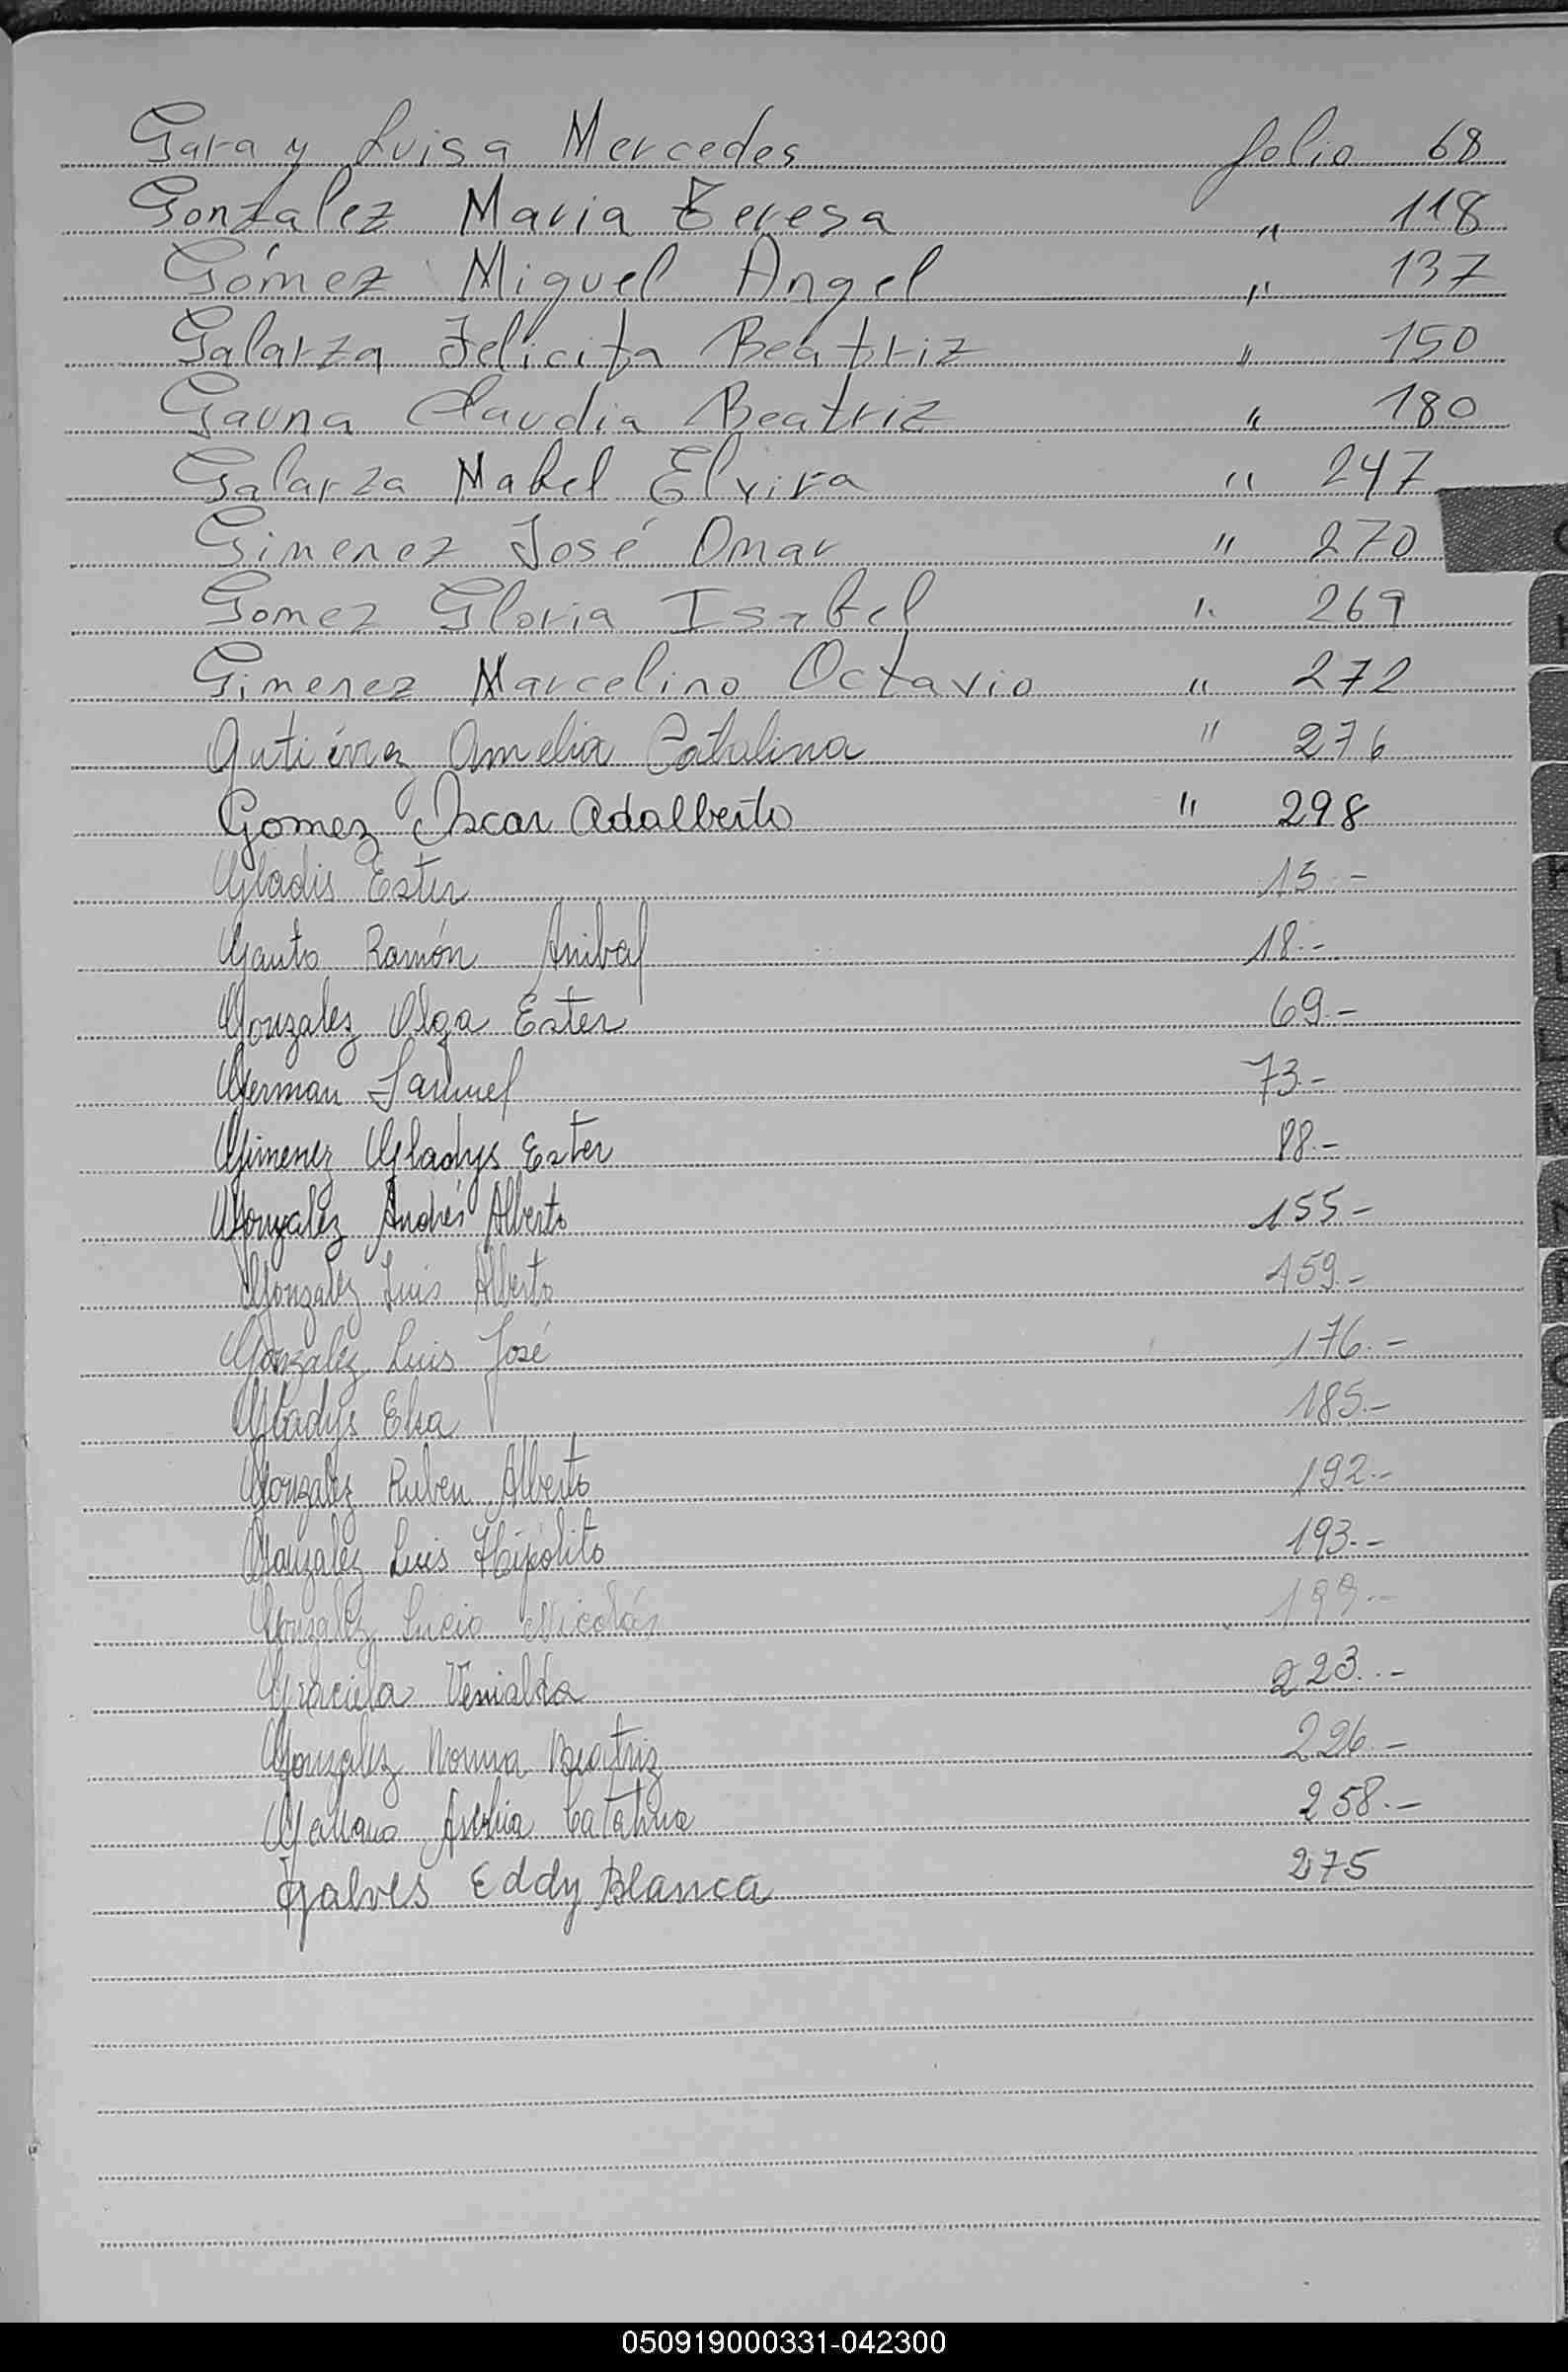 Garay Luisa Mercedes folio 68
Gonzalez Maria Teresa " 118
Gómez Miguel Angel " 137
Galarza Felicita Beatriz " 150
Gauna Claudia Beatriz " 180
Galarza Mabel Elvira " 247
Gimenez José Omar " 270
Gomez Gloria Isabel " 269
Gimenez Marcelino Octavio " 272
Gutiérrez Amelia Catalina " 276
Gomez Oscar Adalberto " 298
Gladis Ester 15.-
Gauto Ramón Anibal 18.-
Gonzalez Olga Ester 69.-
German Samuel 73.-
Gimenez Gladys Ester 88.-
Gonzalez Andrés Alberto 155-
Gonzalez Luis Alberto 159.-
Gonzalez Luis José 176.-
Gladys Elsa 185.-
Gonzalez Ruben Alberto 192.-
Gonzalez Luis Hipólito 193.-
Gonzalez Lucio Nicolás 199.-
Graciela 223.-
Gonzalez Norma Beatriz 226.-
Catalina 258.-
Galves Eddy Blanca 275
050919000331-042300